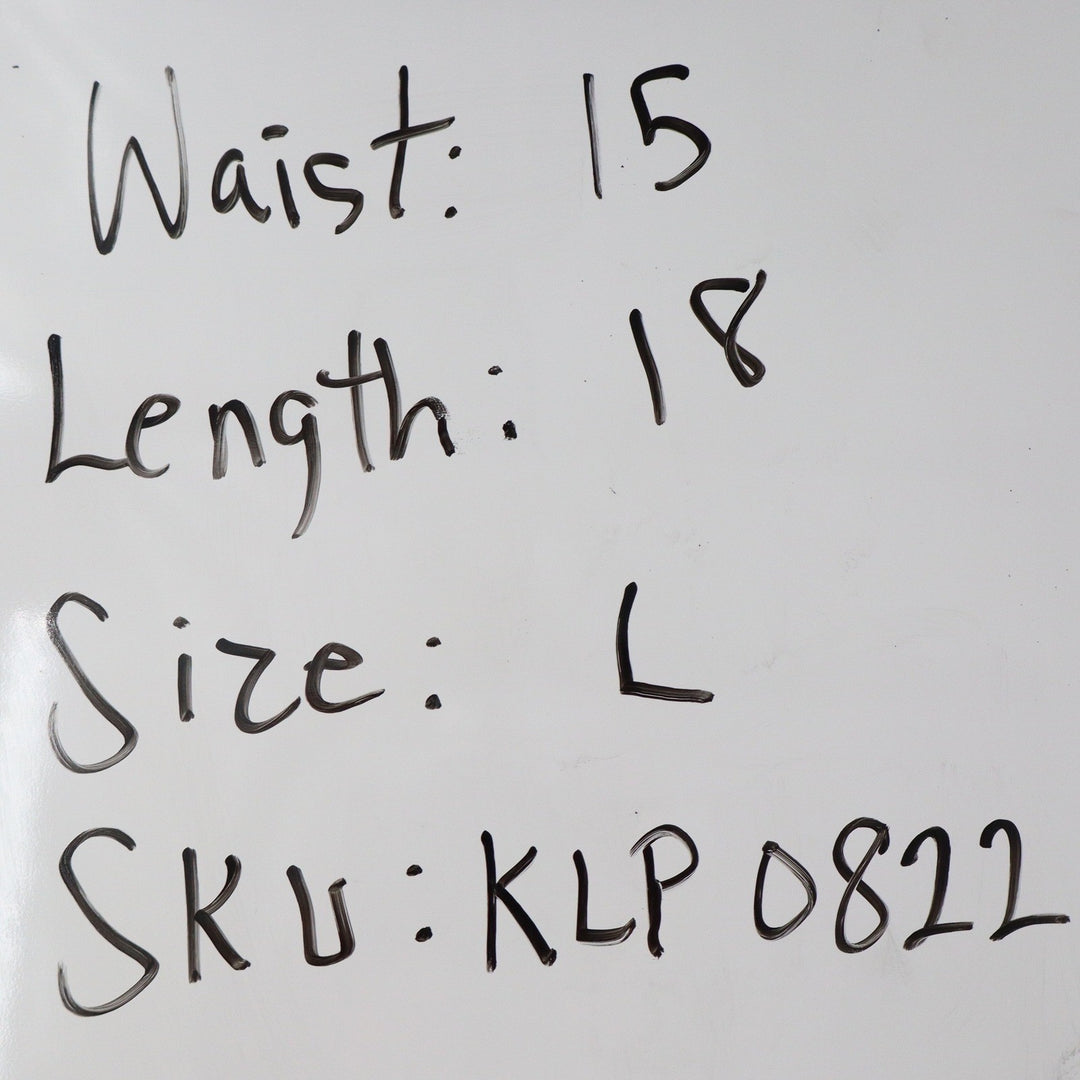 Waist: 15
Length: 18
Size: L
SKU: KLP 0822